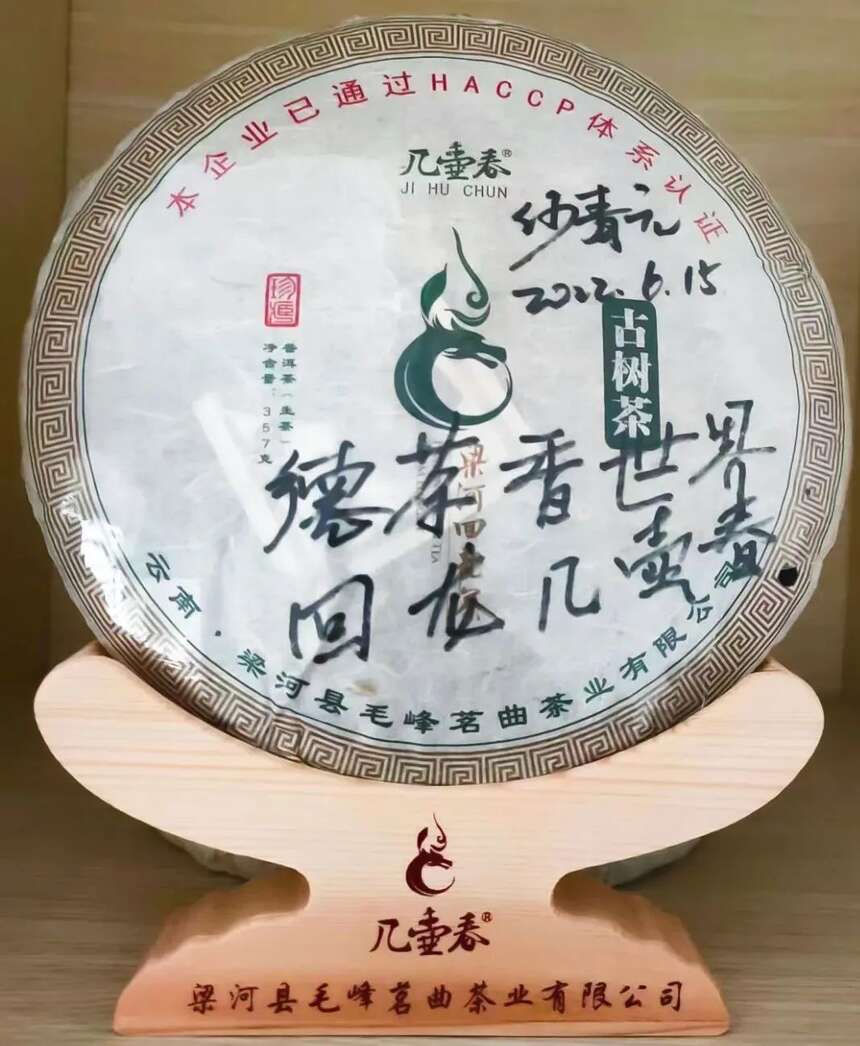 本企业已通过HACCP体系认证
几壶春®
JI HU CHUN
青元
2022.6.15
古树茶
珍藏
普洱茶（生茶）
净含量：357克
梁河回龙
德茶香世界
回龙几壶春
云南·梁河县毛峰茗曲茶业有限公司
几壶春®
梁河县毛峰茗曲茶业有限公司